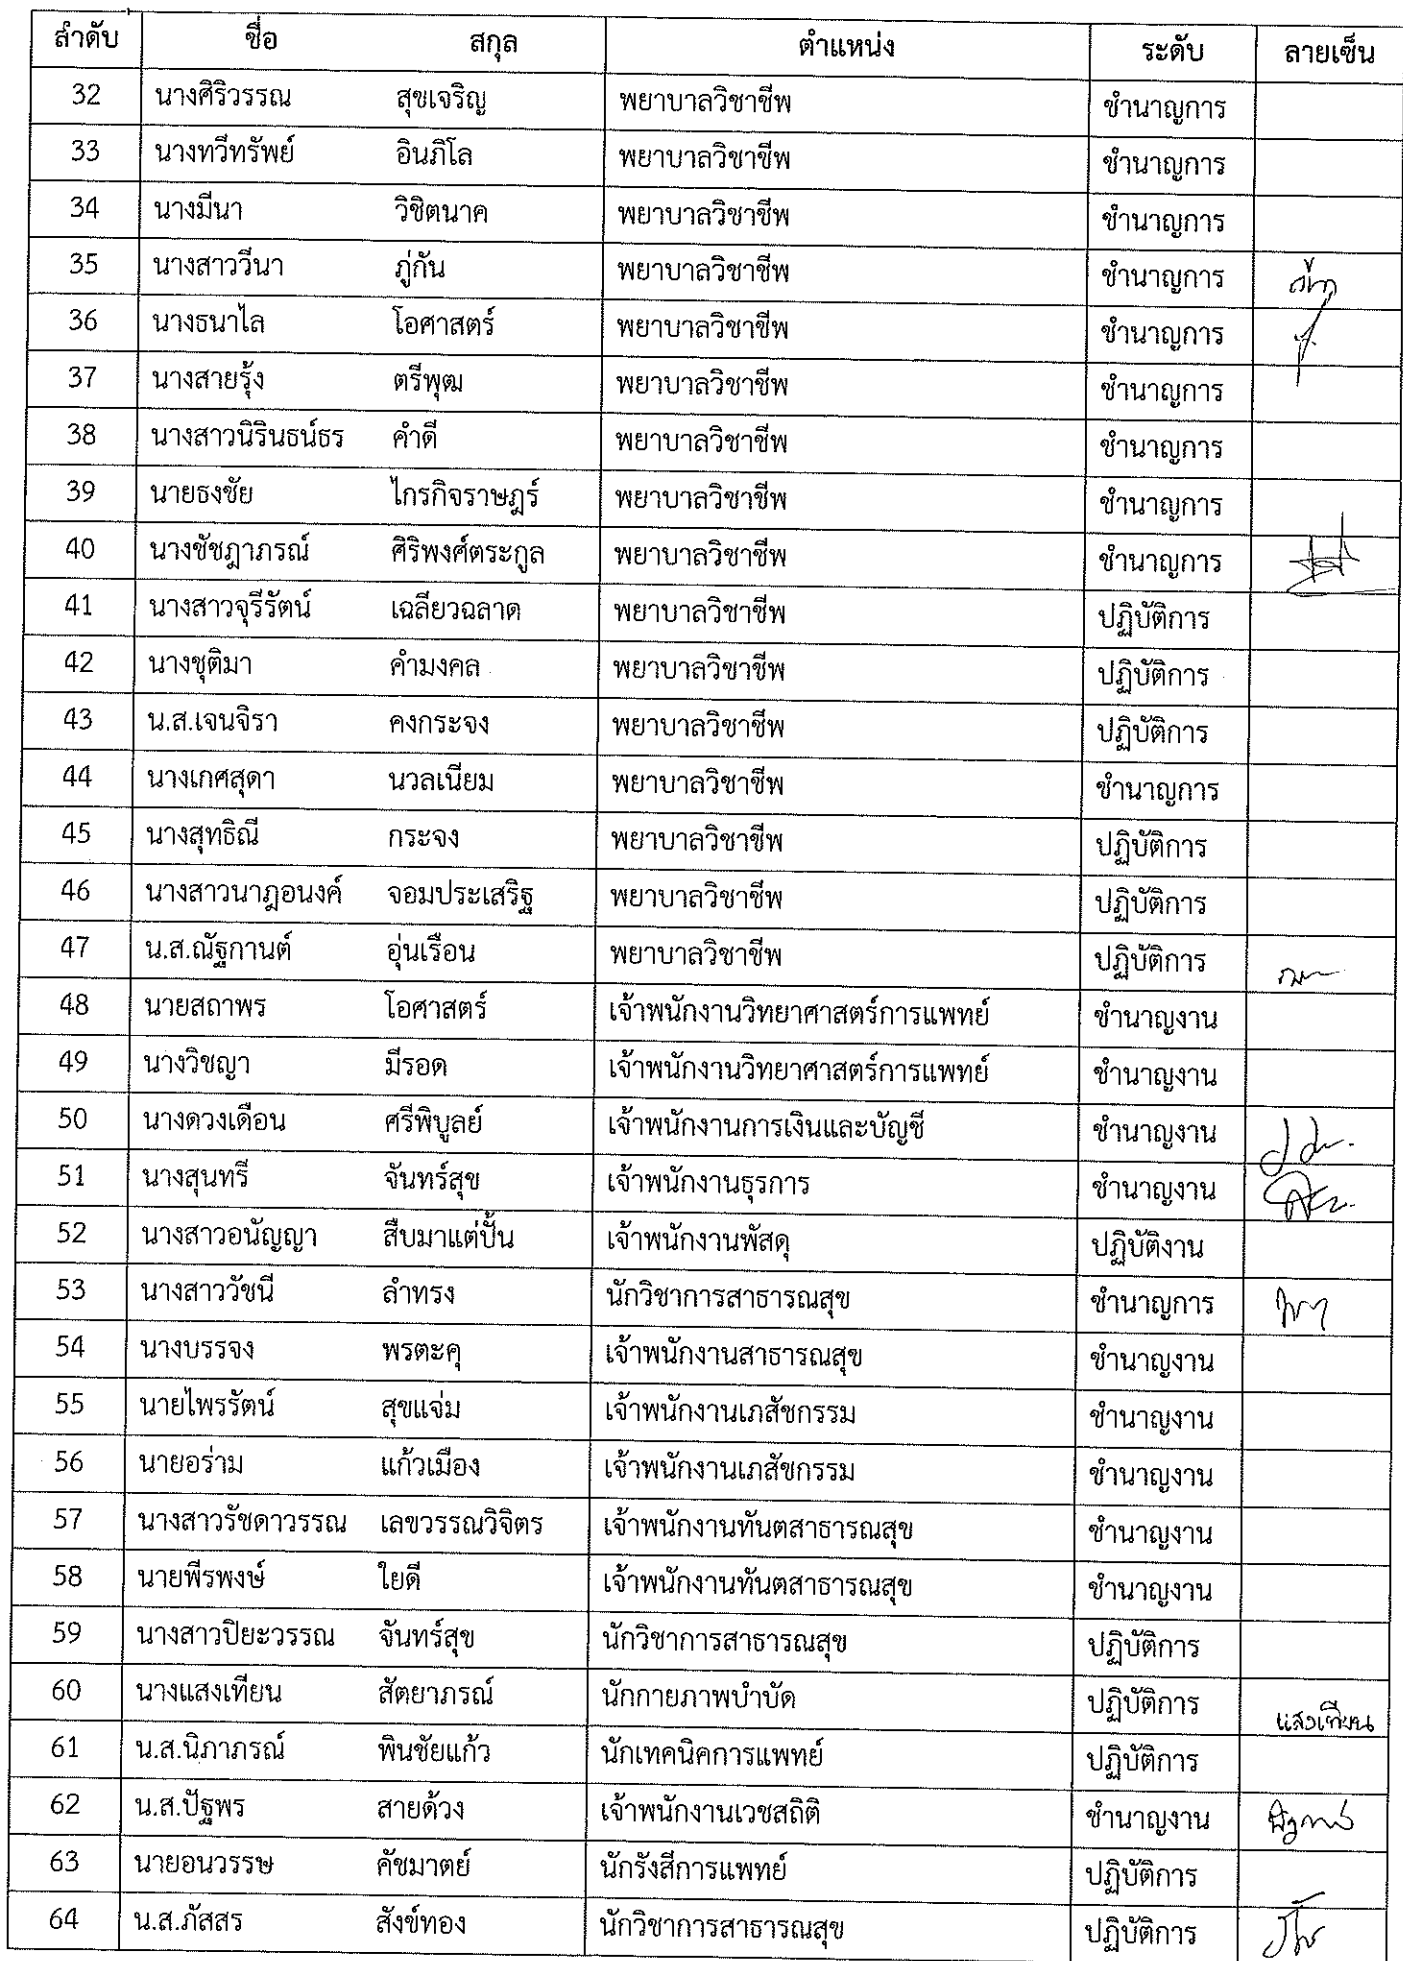 ลำดับ ชื่อ สกุล ตำแหน่ง ระดับ ลายเซ็น
32 นางศิริวรรณ สุขเจริญ พยาบาลวิชาชีพ ชำนาญการ
33 นางทวีทรัพย์ อินภิโล พยาบาลวิชาชีพ ชำนาญการ
34 นางมีนา วิชิตนาค พยาบาลวิชาชีพ ชำนาญการ
35 นางสาววีนา ภู่กัน พยาบาลวิชาชีพ ชำนาญการ
36 นางธนาไล โอศาสตร์ พยาบาลวิชาชีพ ชำนาญการ
37 นางสายรุ้ง ตรีพุฒ พยาบาลวิชาชีพ ชำนาญการ
38 นางสาวนิรินธน์ธร คำดี พยาบาลวิชาชีพ ชำนาญการ
39 นายธงชัย ไกรกิจราษฎร์ พยาบาลวิชาชีพ ชำนาญการ
40 นางชัชฎาภรณ์ ศิริพงศ์ตระกูล พยาบาลวิชาชีพ ชำนาญการ
41 นางสาวจุรีรัตน์ เฉลียวฉลาด พยาบาลวิชาชีพ ปฏิบัติการ
42 นางชุติมา คำมงคล พยาบาลวิชาชีพ ปฏิบัติการ
43 น.ส.เจนจิรา คงกระจง พยาบาลวิชาชีพ ปฏิบัติการ
44 นางเกศสุดา นวลเนียม พยาบาลวิชาชีพ ชำนาญการ
45 นางสุทธิณี กระจง พยาบาลวิชาชีพ ปฏิบัติการ
46 นางสาวนาฎอนงค์ จอมประเสริฐ พยาบาลวิชาชีพ ปฏิบัติการ
47 น.ส.ณัฐกานต์ อุ่นเรือน พยาบาลวิชาชีพ ปฏิบัติการ
48 นายสถาพร โอศาสตร์ เจ้าพนักงานวิทยาศาสตร์การแพทย์ ชำนาญงาน
49 นางวิชญา มีรอด เจ้าพนักงานวิทยาศาสตร์การแพทย์ ชำนาญงาน
50 นางดวงเดือน ศรีพิบูลย์ เจ้าพนักงานการเงินและบัญชี ชำนาญงาน
51 นางสุนทรี จันทร์สุข เจ้าพนักงานธุรการ ชำนาญงาน
52 นางสาวอนัญญา สืบมาแต่ปั้น เจ้าพนักงานพัสดุ ปฏิบัติงาน
53 นางสาววัชนี ลำทรง นักวิชาการสาธารณสุข ชำนาญการ
54 นางบรรจง พรตะคุ เจ้าพนักงานสาธารณสุข ชำนาญงาน
55 นายไพรรัตน์ สุขแจ่ม เจ้าพนักงานเภสัชกรรม ชำนาญงาน
56 นายอร่าม แก้วเมือง เจ้าพนักงานเภสัชกรรม ชำนาญงาน
57 นางสาวรัชดาวรรณ เลขวรรณวิจิตร เจ้าพนักงานทันตสาธารณสุข ชำนาญงาน
58 นายพีรพงษ์ ใยดี เจ้าพนักงานทันตสาธารณสุข ชำนาญงาน
59 นางสาวปิยะวรรณ จันทร์สุข นักวิชาการสาธารณสุข ปฏิบัติการ
60 นางแสงเทียน สัตยาภรณ์ นักกายภาพบำบัด ปฏิบัติการ แสงเทียน
61 น.ส.นิภาภรณ์ พินชัยแก้ว นักเทคนิคการแพทย์ ปฏิบัติการ
62 น.ส.ปัฐพร สายด้วง เจ้าพนักงานเวชสถิติ ชำนาญงาน
63 นายอนวรรษ คัชมาตย์ นักรังสีการแพทย์ ปฏิบัติการ
64 น.ส.ภัสสร สังข์ทอง นักวิชาการสาธารณสุข ปฏิบัติการ